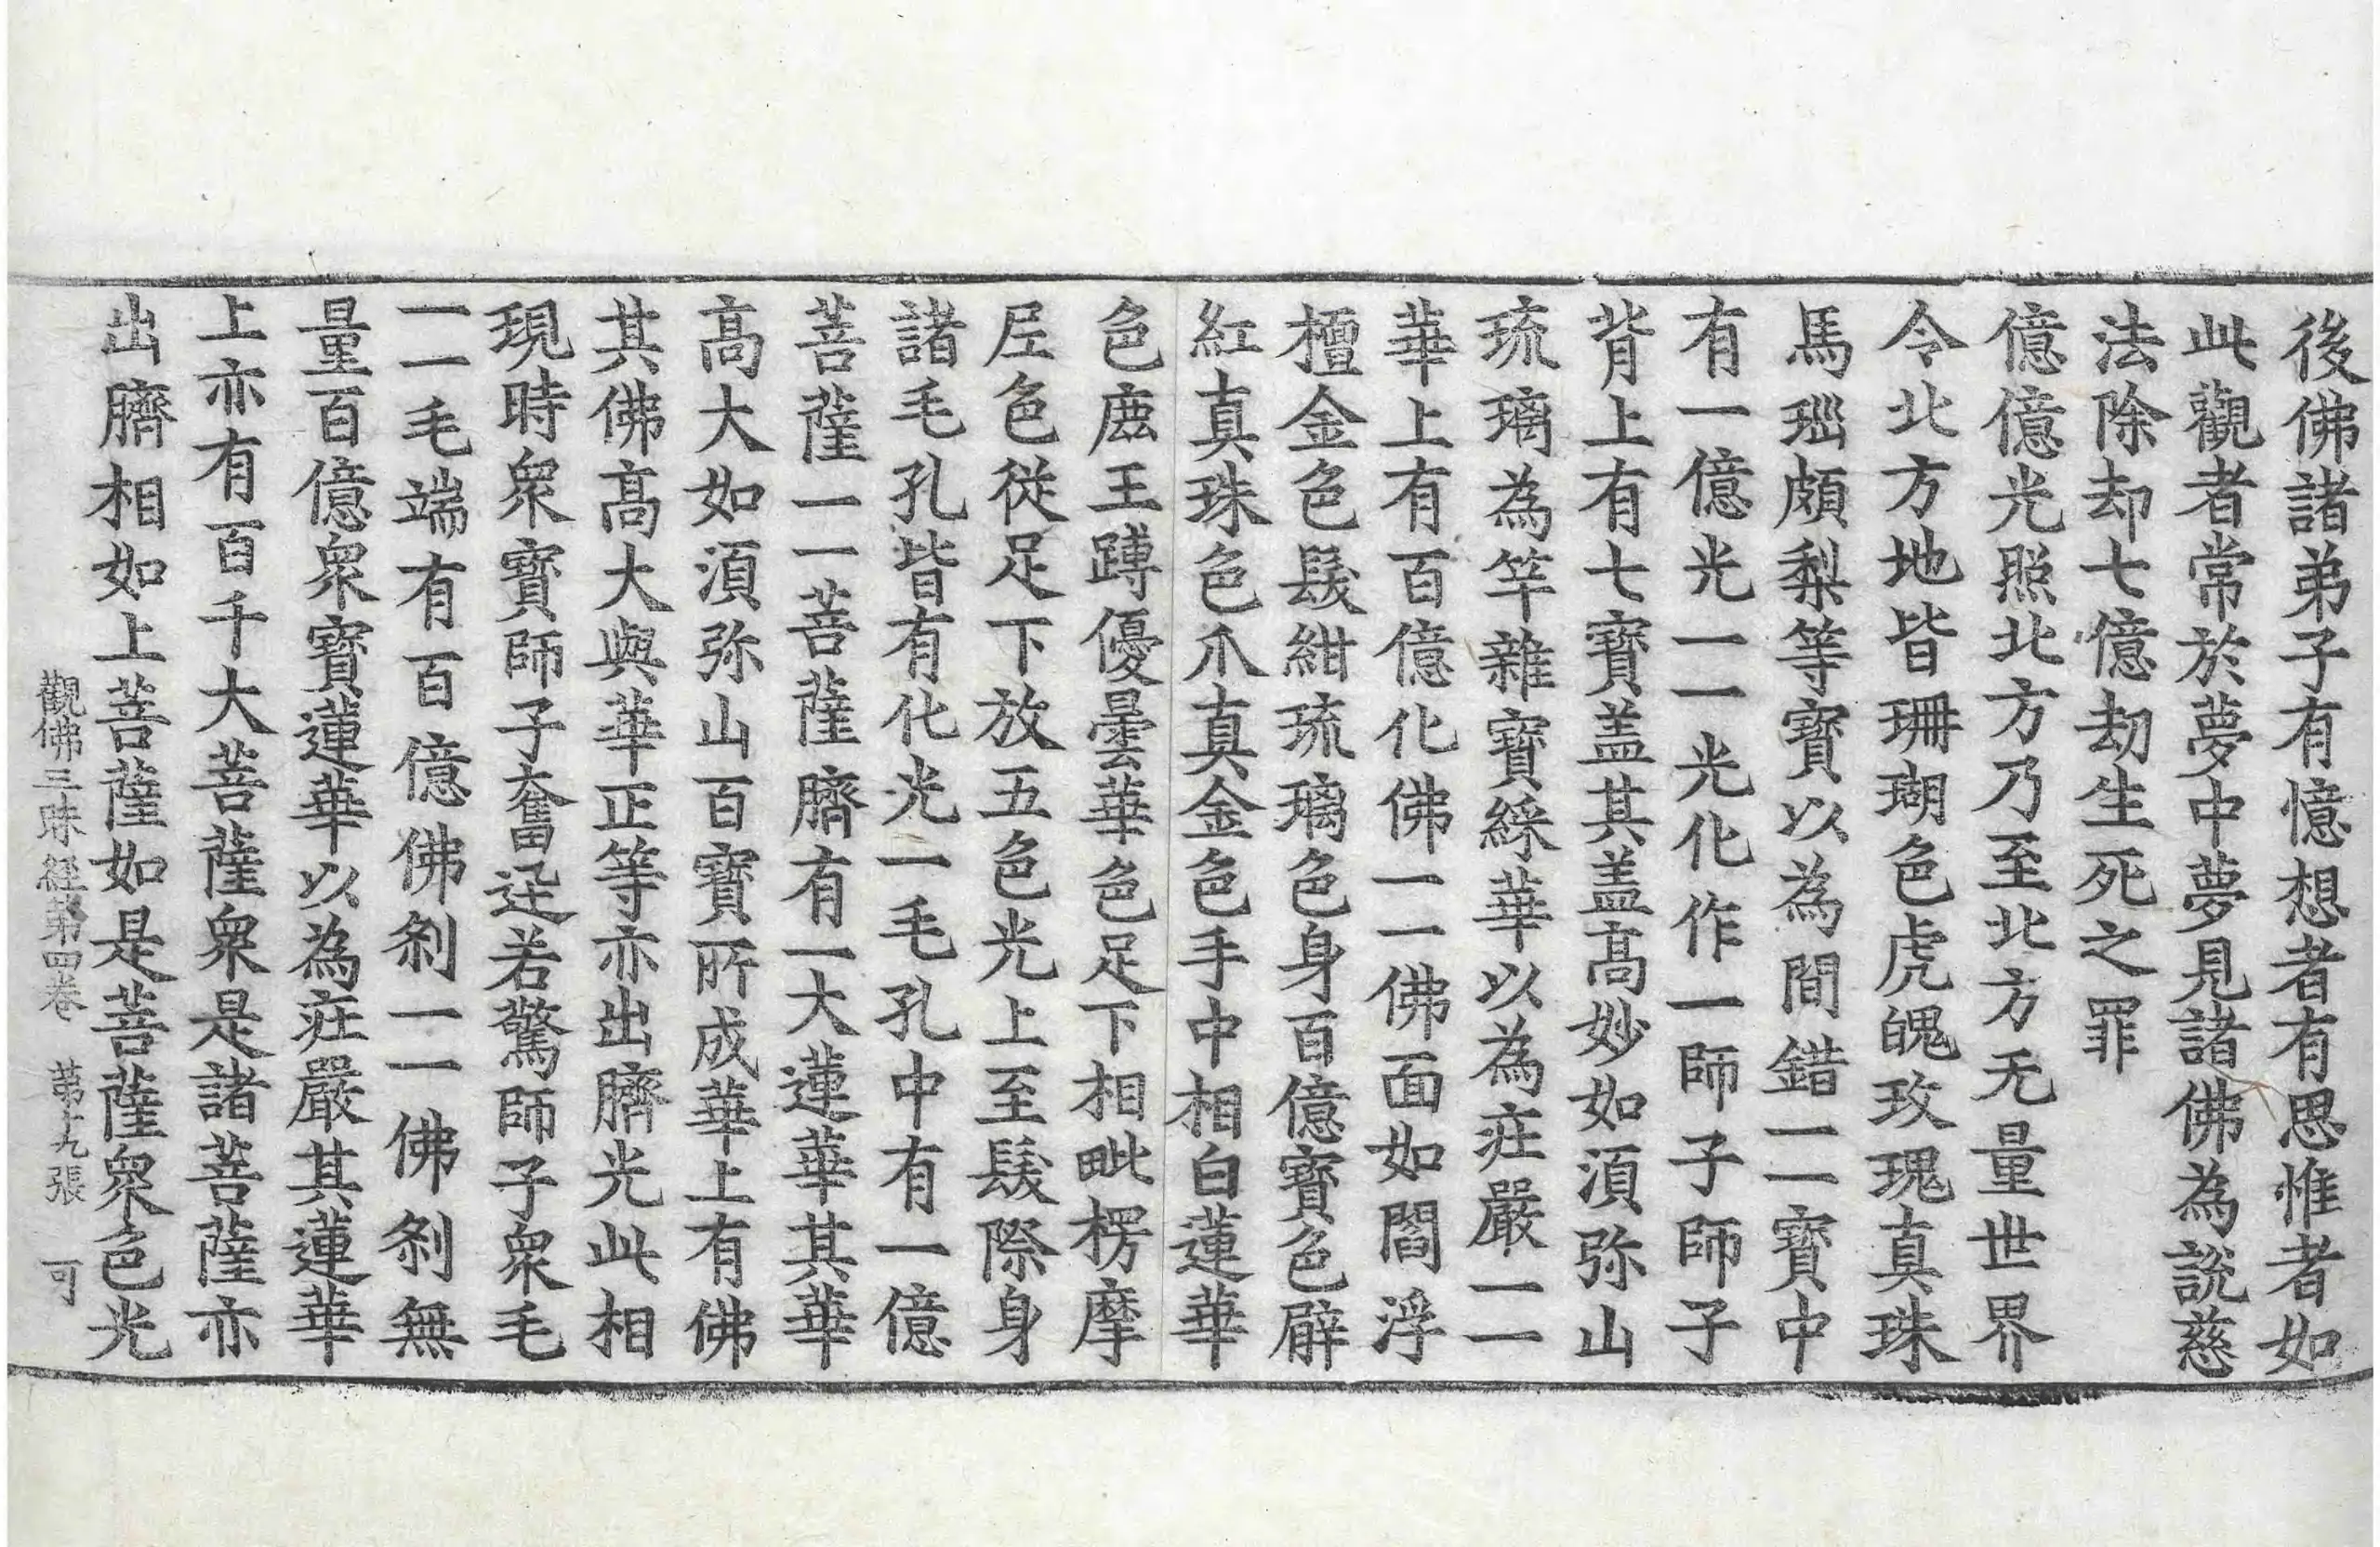 後佛諸弟子有憶想者有思惟者如
此觀者常於夢中夢見諸佛為說慈
法除却七億劫生死之罪
億億光照北方乃至北方无量世界
令北方地皆珊瑚色虎魄玫瑰真珠
馬瑙頗梨等寶以為間錯一一寶中
有一億光一一光化作一師子師子
背上有七寶盖其盖高妙如湏弥山
琉璃為竿雜寶綵華以為莊嚴一一
華上有百億化佛一一佛面如閻浮
檀金色髮紺琉璃色身百億寶色臂
紅真珠色爪真金色手中相白蓮華
色鹿王蹲優曇華色足下相毗楞摩
尼色從足下放五色光上至髮際身
諸毛孔皆有化光一毛孔中有一億
菩薩一一菩薩臍有一大蓮華其華
高大如湏弥山百寶所成華上有佛
其佛高大與華正等亦出臍光此相
現時衆寶師子奮迅若驚師子衆毛
一一毛端有百億佛刹一一佛刹無
量百億衆寶蓮華以為莊嚴其蓮華
上亦有百千大菩薩衆是諸菩薩亦
出臍相如上菩薩如是菩薩衆色光
觀佛三昧經第四卷 第十九張 可